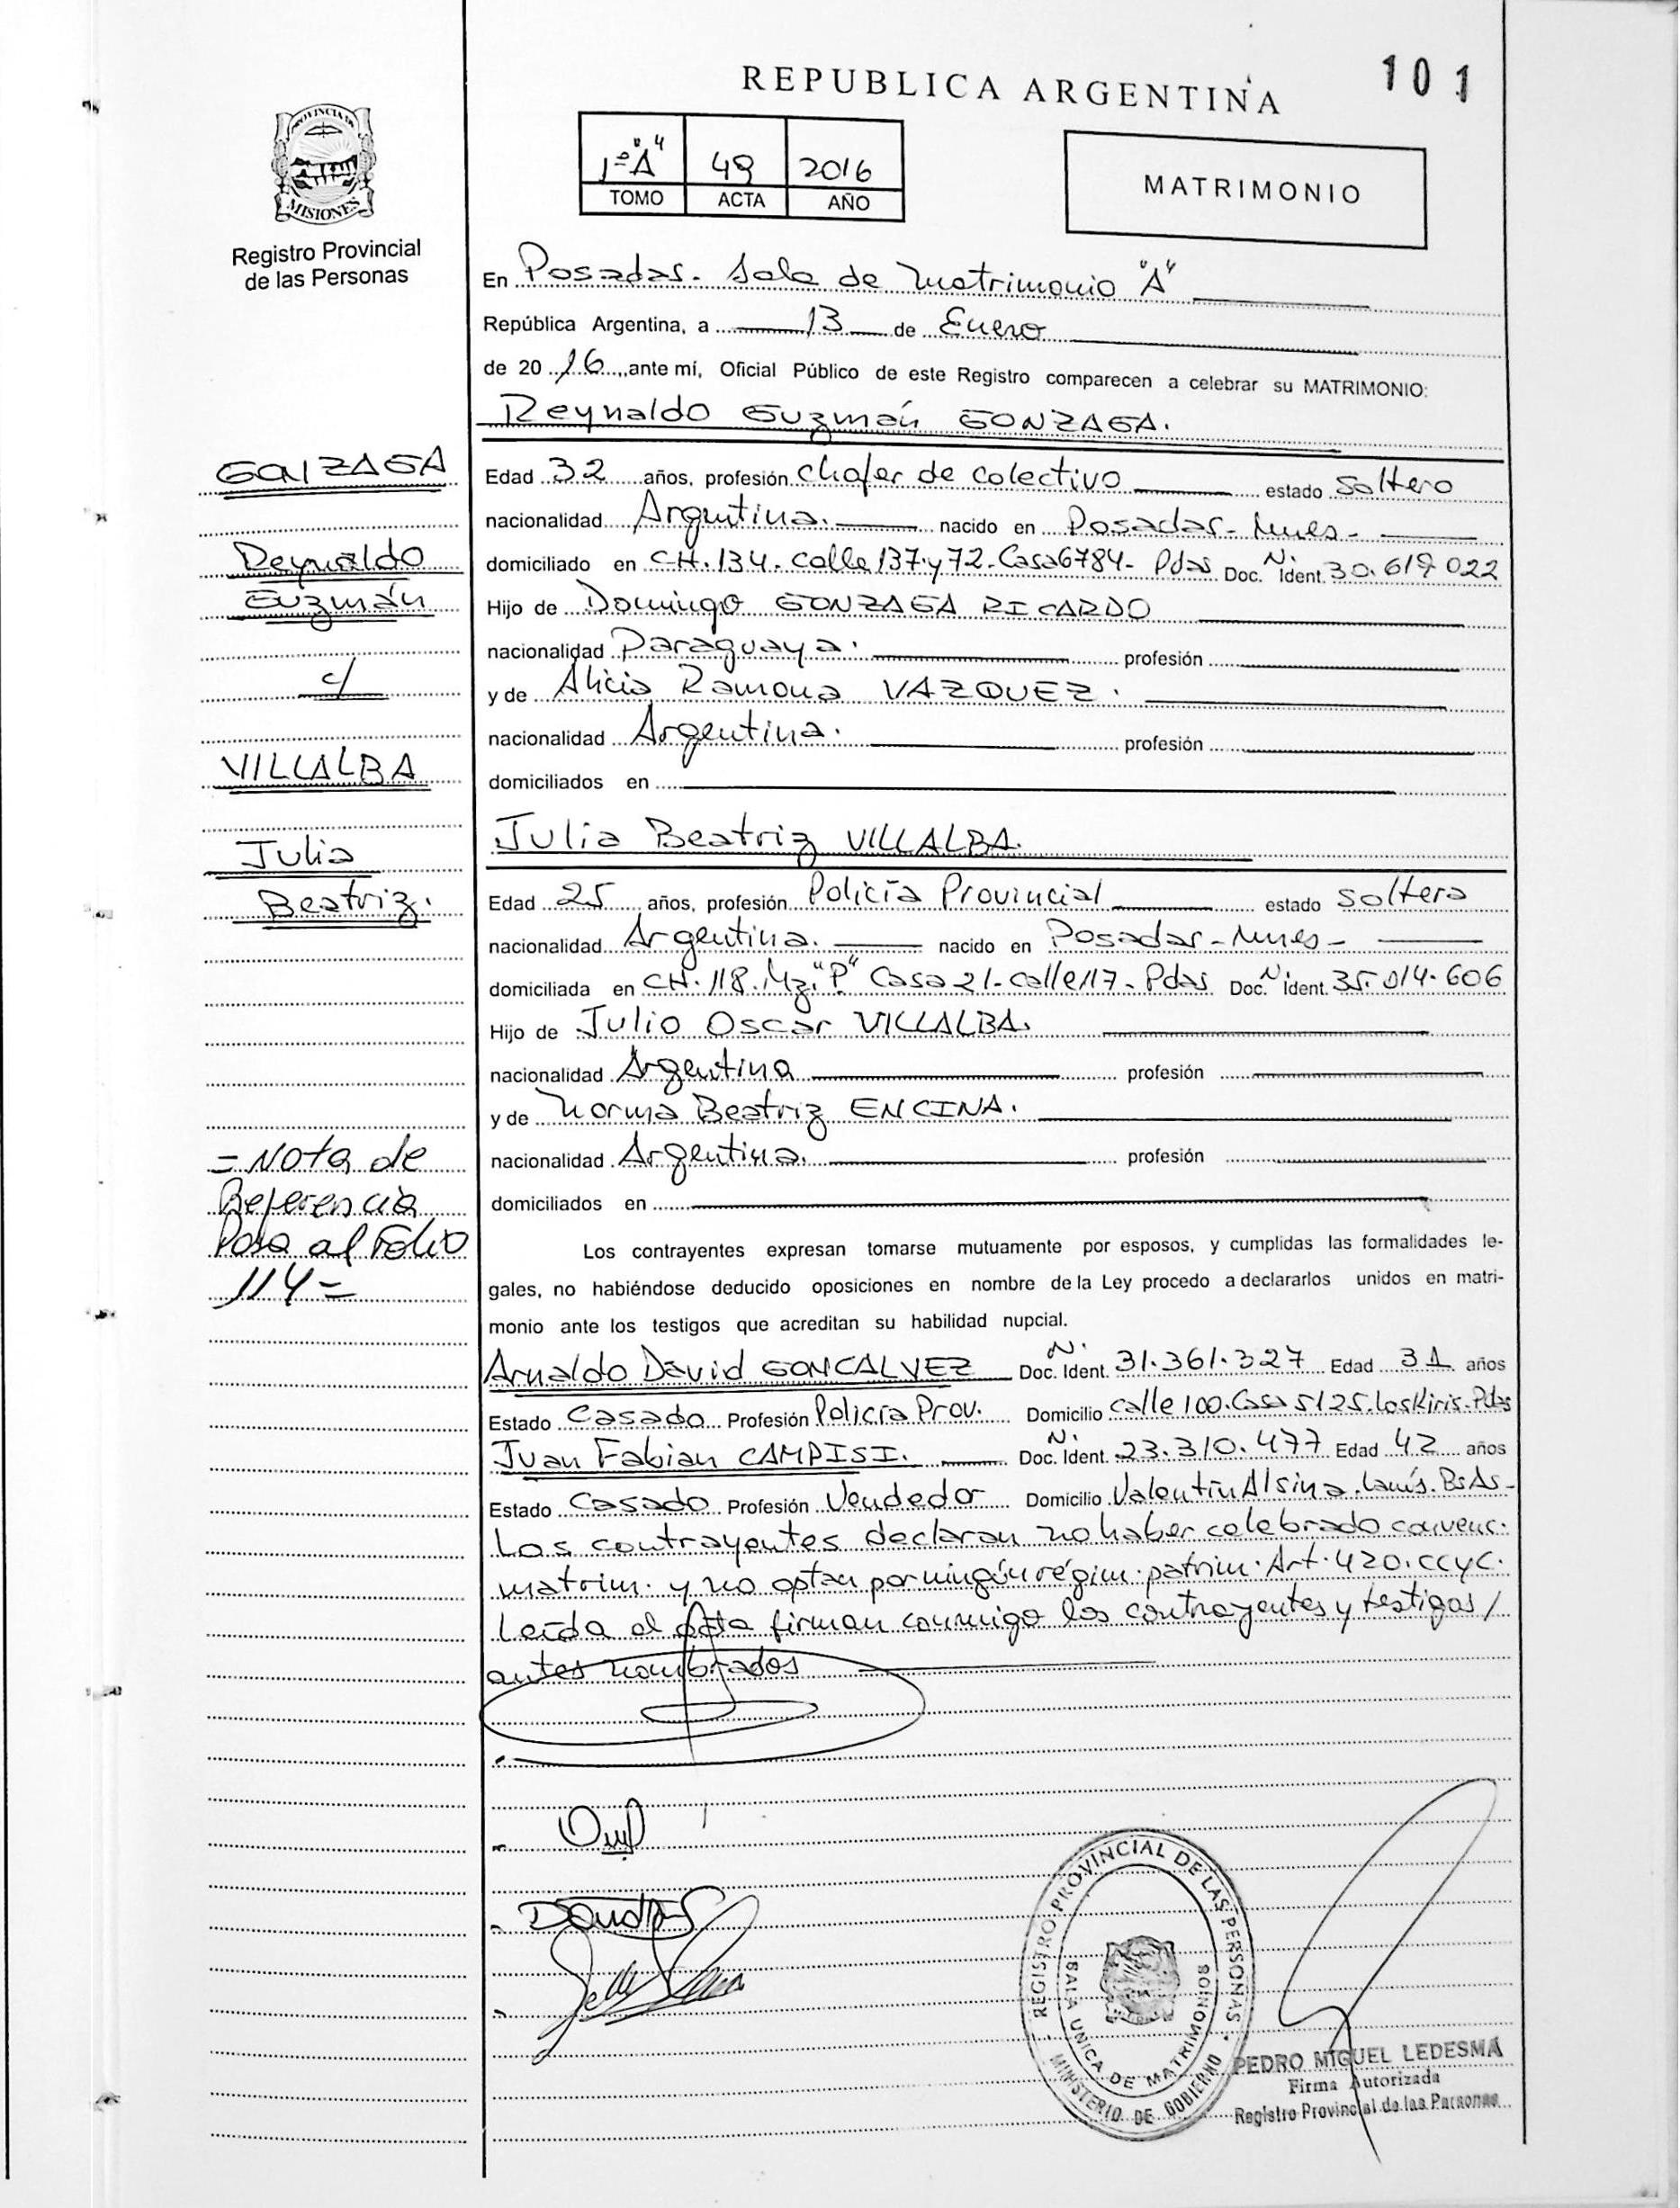 101
REPUBLICA ARGENTINA
PROVINCIA DE
MISIONES
Registro Provincial
de las Personas
1º "A" 49 2016
TOMO ACTA AÑO
MATRIMONIO
En Posadas- Sala de Matrimonio "A"
República Argentina, a 13 de Enero
de 2016, ante mí, Oficial Público de este Registro comparecen a celebrar su MATRIMONIO:
Reynaldo Guzmán GONZAGA.
Edad 32 años, profesión Chofer de Colectivo estado Soltero
nacionalidad Argentina. nacido en Posadas- Mnes-
domiciliado en CH. 134. calle 137 y 72- Casa 6784- Pdas Doc. N. Ident. 30.619.022
Hijo de Domingo GONZAGA RICARDO
nacionalidad Paraguaya. profesión
y de Alicia Ramona VAZQUEZ.
nacionalidad Argentina. profesión
domiciliados en
Julia Beatriz VILLALBA.
Edad 25 años, profesión Policía Provincial estado Soltera
nacionalidad Argentina. nacido en Posadas- Mnes-
domiciliada en CH. 118. Mz. "P" Casa 21- calle 117- Pdas Doc. N. Ident. 35.014.606
Hijo de Julio Oscar VILLALBA.
nacionalidad Argentina profesión
y de Norma Beatriz ENCINA.
nacionalidad Argentina. profesión
domiciliados en
Los contrayentes expresan tomarse mutuamente por esposos, y cumplidas las formalidades le-
gales, no habiéndose deducido oposiciones en nombre de la Ley procedo a declararlos unidos en matri-
monio ante los testigos que acreditan su habilidad nupcial.
Arnaldo David GONCALVEZ Doc. N. Ident. 31.361.327 Edad 31 años
Estado Casado Profesión Policía Prov. Domicilio calle 100. Casa 5125. Los Kiris. Pdas
Juan Fabian CAMPISI. Doc. N. Ident. 23.310.477 Edad 42 años
Estado Casado Profesión Vendedor Domicilio Valentín Alsina. Lanús. BsAs-
Los contrayentes declaran no haber celebrado convenc.
matrim. y no optan por ningún régim. patrim. Art. 420. CCyC.
Leída el acta firman conmigo los contrayentes y testigos/
antes nombrados
GONZAGA
Reynaldo
Guzmán
c/
VILLALBA
Julia
Beatriz.
= Nota de
Referencia
Pasa al Folio
114=
REGISTRO PROVINCIAL DE LAS PERSONAS
SALA UNICA DE MATRIMONIOS
MINISTERIO DE GOBIERNO
PEDRO MIGUEL LEDESMA
Firma Autorizada
Registro Provincial de las Personas